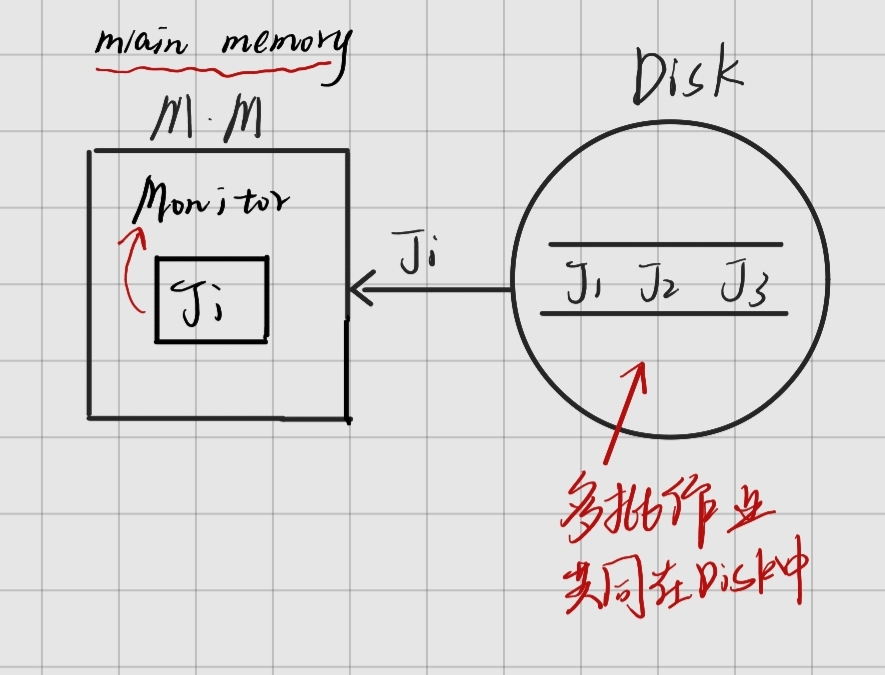 main memory
M.M
Disk
Monitor
Ji
Ji
J1 J2 J3
多批作业
共同在Disk中